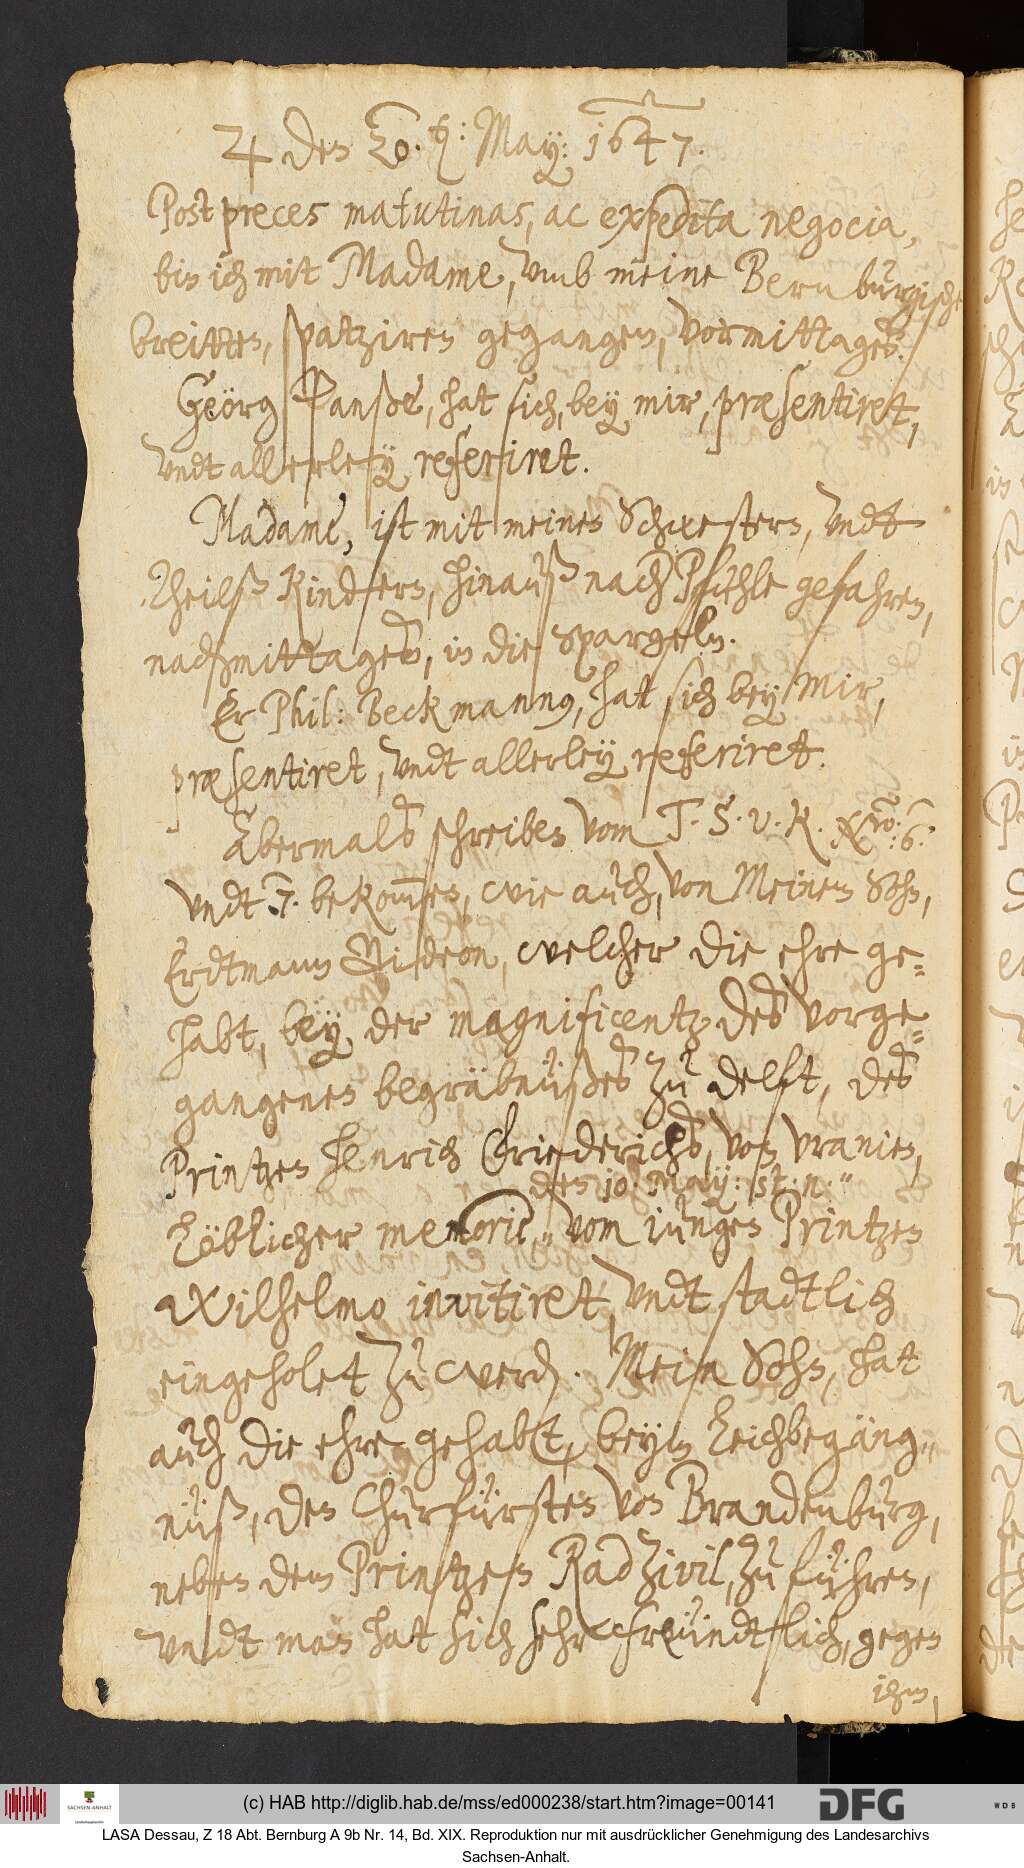 ♃ den 20.t: May: 1647.
Post preces matutinas, ac expedita negocia,
bin ich mit Madame, vmb meine Bernburgische
breitten, spatziren gegangen, vormittages.
Geörg Panße, hat sich, bey mir, præsentiret,
vndt allerley referiret.
Madame, ist mit meinen Schwestern, vndt
theilß Kindern, hinauß nach Pfuhle gefahren,
nachmittages, in die Spargeln.
Er Phil: Beckmannus, hat sich bey mir,
præsentiret, vndt allerley referiret.
Abermals schreiben vom T. S. v. K. Nro: 6.
vndt 7. bekommen, wie auch, von Meinem Sohn,
Erdtmann Gideon, welcher die ehre ge-
habt, bey der magnificentz des vorge-
gangenen begräbnüßes zu Delft, des
Printzen Henrich Friederichs, von Vranien,
den 10. May: st. n."
Löblicher memorie," vom jungen Printzen
Wilhelmo invitiret, vndt stadtlich
eingeholet zu werden. Mein Sohn, hat
auch die ehre gehabt, beym Leichbegäng-
nüß, den Churfürsten von Brandenburg,
neben dem Printzen Radzivil, zu führen,
vndt man hat sich sehr freündtlich, gegen
ihm,
(c) HAB http://diglib.hab.de/mss/ed000238/start.htm?image=00141
SACHSEN-ANHALT
DFG
WDB
LASA Dessau, Z 18 Abt. Bernburg A 9b Nr. 14, Bd. XIX. Reproduktion nur mit ausdrücklicher Genehmigung des Landesarchivs
Sachsen-Anhalt.